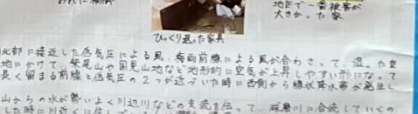 ひっくり返った家具
地区で一番被害が
大きかった家
北部に接近した低気圧による風、梅雨前線による風が合わさって、湿った空
地にかけて、紫尾山や国見山地など地形的に空気が上昇しやすい形になって
長く留まる前線と低気圧の2つが近づいた時に西側から線状降水帯が発生し
山からの水が勢いよく川辺川などの支流を伝って、球磨川に合流していくの
した時に川近くに住して